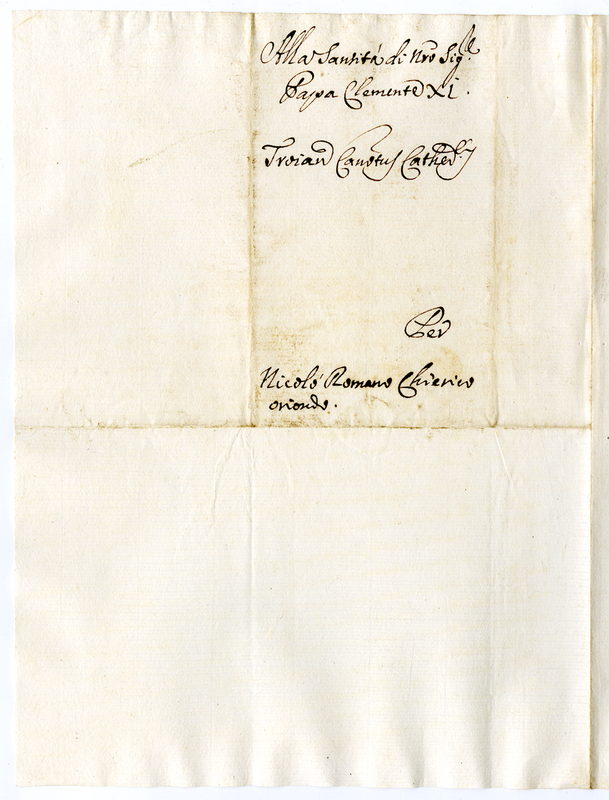 Alla Santità di Nro Sig.re
Papa Clemente XI.
Troian Cathed.
Per
Nicolò Romano Chierico
oriondo.